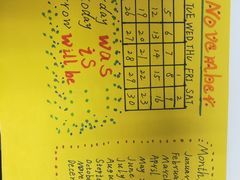 November
TUE WED THU FRI SAT
1 2
5 6 7 8 9
12 13 14 15 16
19 20 21 22 23
26 27 28 29 30
day was
oday is
row will be
Months
January
Februar
March
April
May
June
July
Augu
Septe
Octobe
Nove
Decem